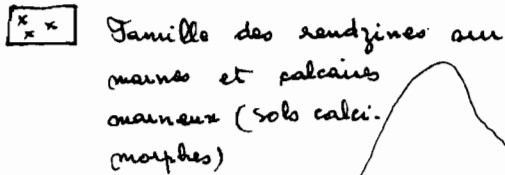 Famille des rendzines sur
marnes et calcaires
marneux (sols calci-
morphes)